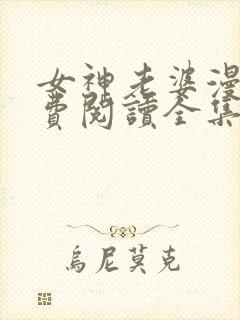 女神老婆漫
費閱讀全集
烏尼莫克